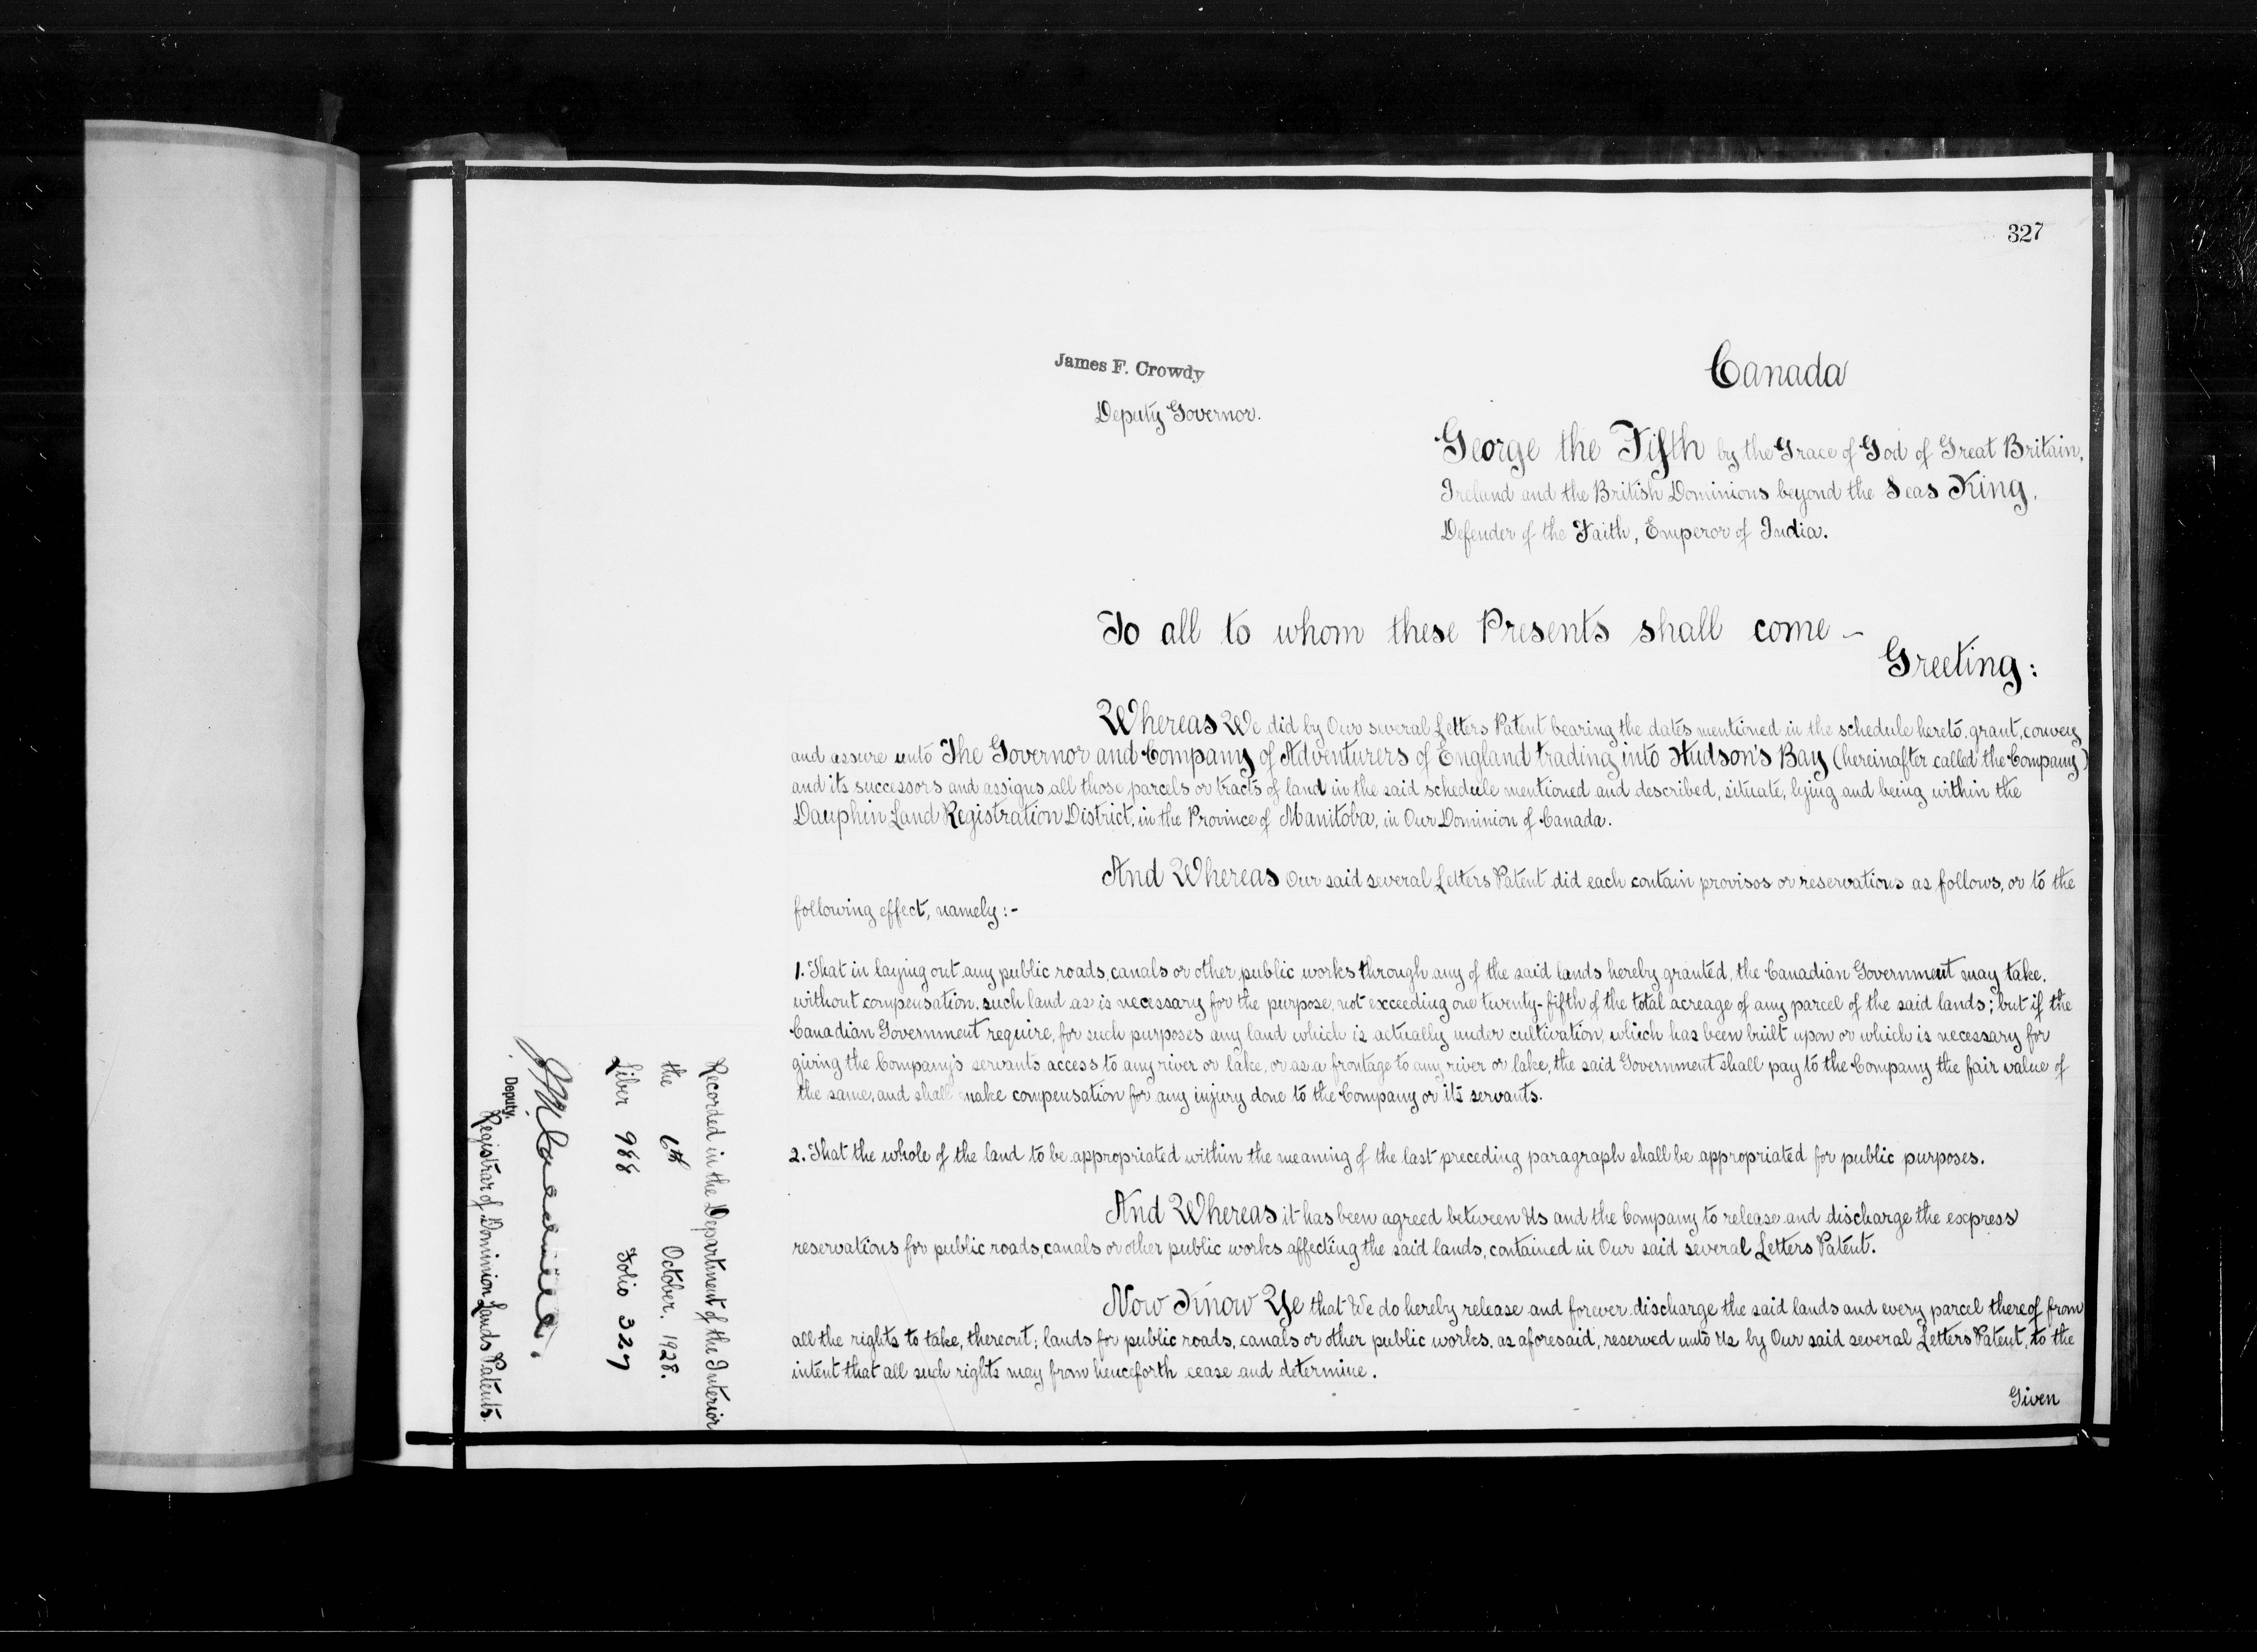 327
James F. Crowdy
Deputy Governor.
Canada
George the Fifth by the Grace of God of Great Britain,
Ireland and the British Dominions beyond the Seas King,
Defender of the Faith, Emperor of India.
To all to whom these Presents shall come -
Greeting:
Whereas We did by Our several Letters Patent bearing the dates mentioned in the schedule hereto, grant, convey
and assure unto The Governor and Company of Adventurers of England trading into Hudson's Bay (hereinafter called the Company)
and its successors and assigns, all those parcels or tracts of land in the said schedule mentioned and described, situate, lying and being within the
Dauphin Land Registration District, in the Province of Manitoba, in Our Dominion of Canada.
And Whereas Our said several Letters Patent did each contain provisos or reservations as follows, or to the
following effect, namely:-
1. That in laying out any public roads, canals or other public works through any of the said lands hereby granted, the Canadian Government may take,
without compensation, such land as is necessary for the purpose, not exceeding one twenty-fifth of the total acreage of any parcel of the said lands; but if the
Canadian Government require, for such purposes any land which is actually under cultivation, which has been built upon or which is necessary for
giving the Company's servants access to any river or lake, or as a frontage to any river or lake, the said Government shall pay to the Company the fair value of
the same, and shall make compensation for any injury done to the Company or its servants.
2. That the whole of the land to be appropriated within the meaning of the last preceding paragraph shall be appropriated for public purposes.
And Whereas it has been agreed between Us and the Company to release and discharge the express
reservations for public roads, canals or other public works affecting the said lands, contained in Our said several Letters Patent.
Now Know Ye that We do hereby release and forever discharge the said lands and every parcel thereof from
all the rights to take, thereout, lands for public roads, canals or other public works, as aforesaid, reserved unto Us by Our said several Letters Patent, to the
intent that all such rights may from henceforth cease and determine.
Given
Recorded in the Department of the Interior
the 6th October. 1928.
Liber 988 Folio 327
Deputy,
Registrar of Dominion Lands Patents.